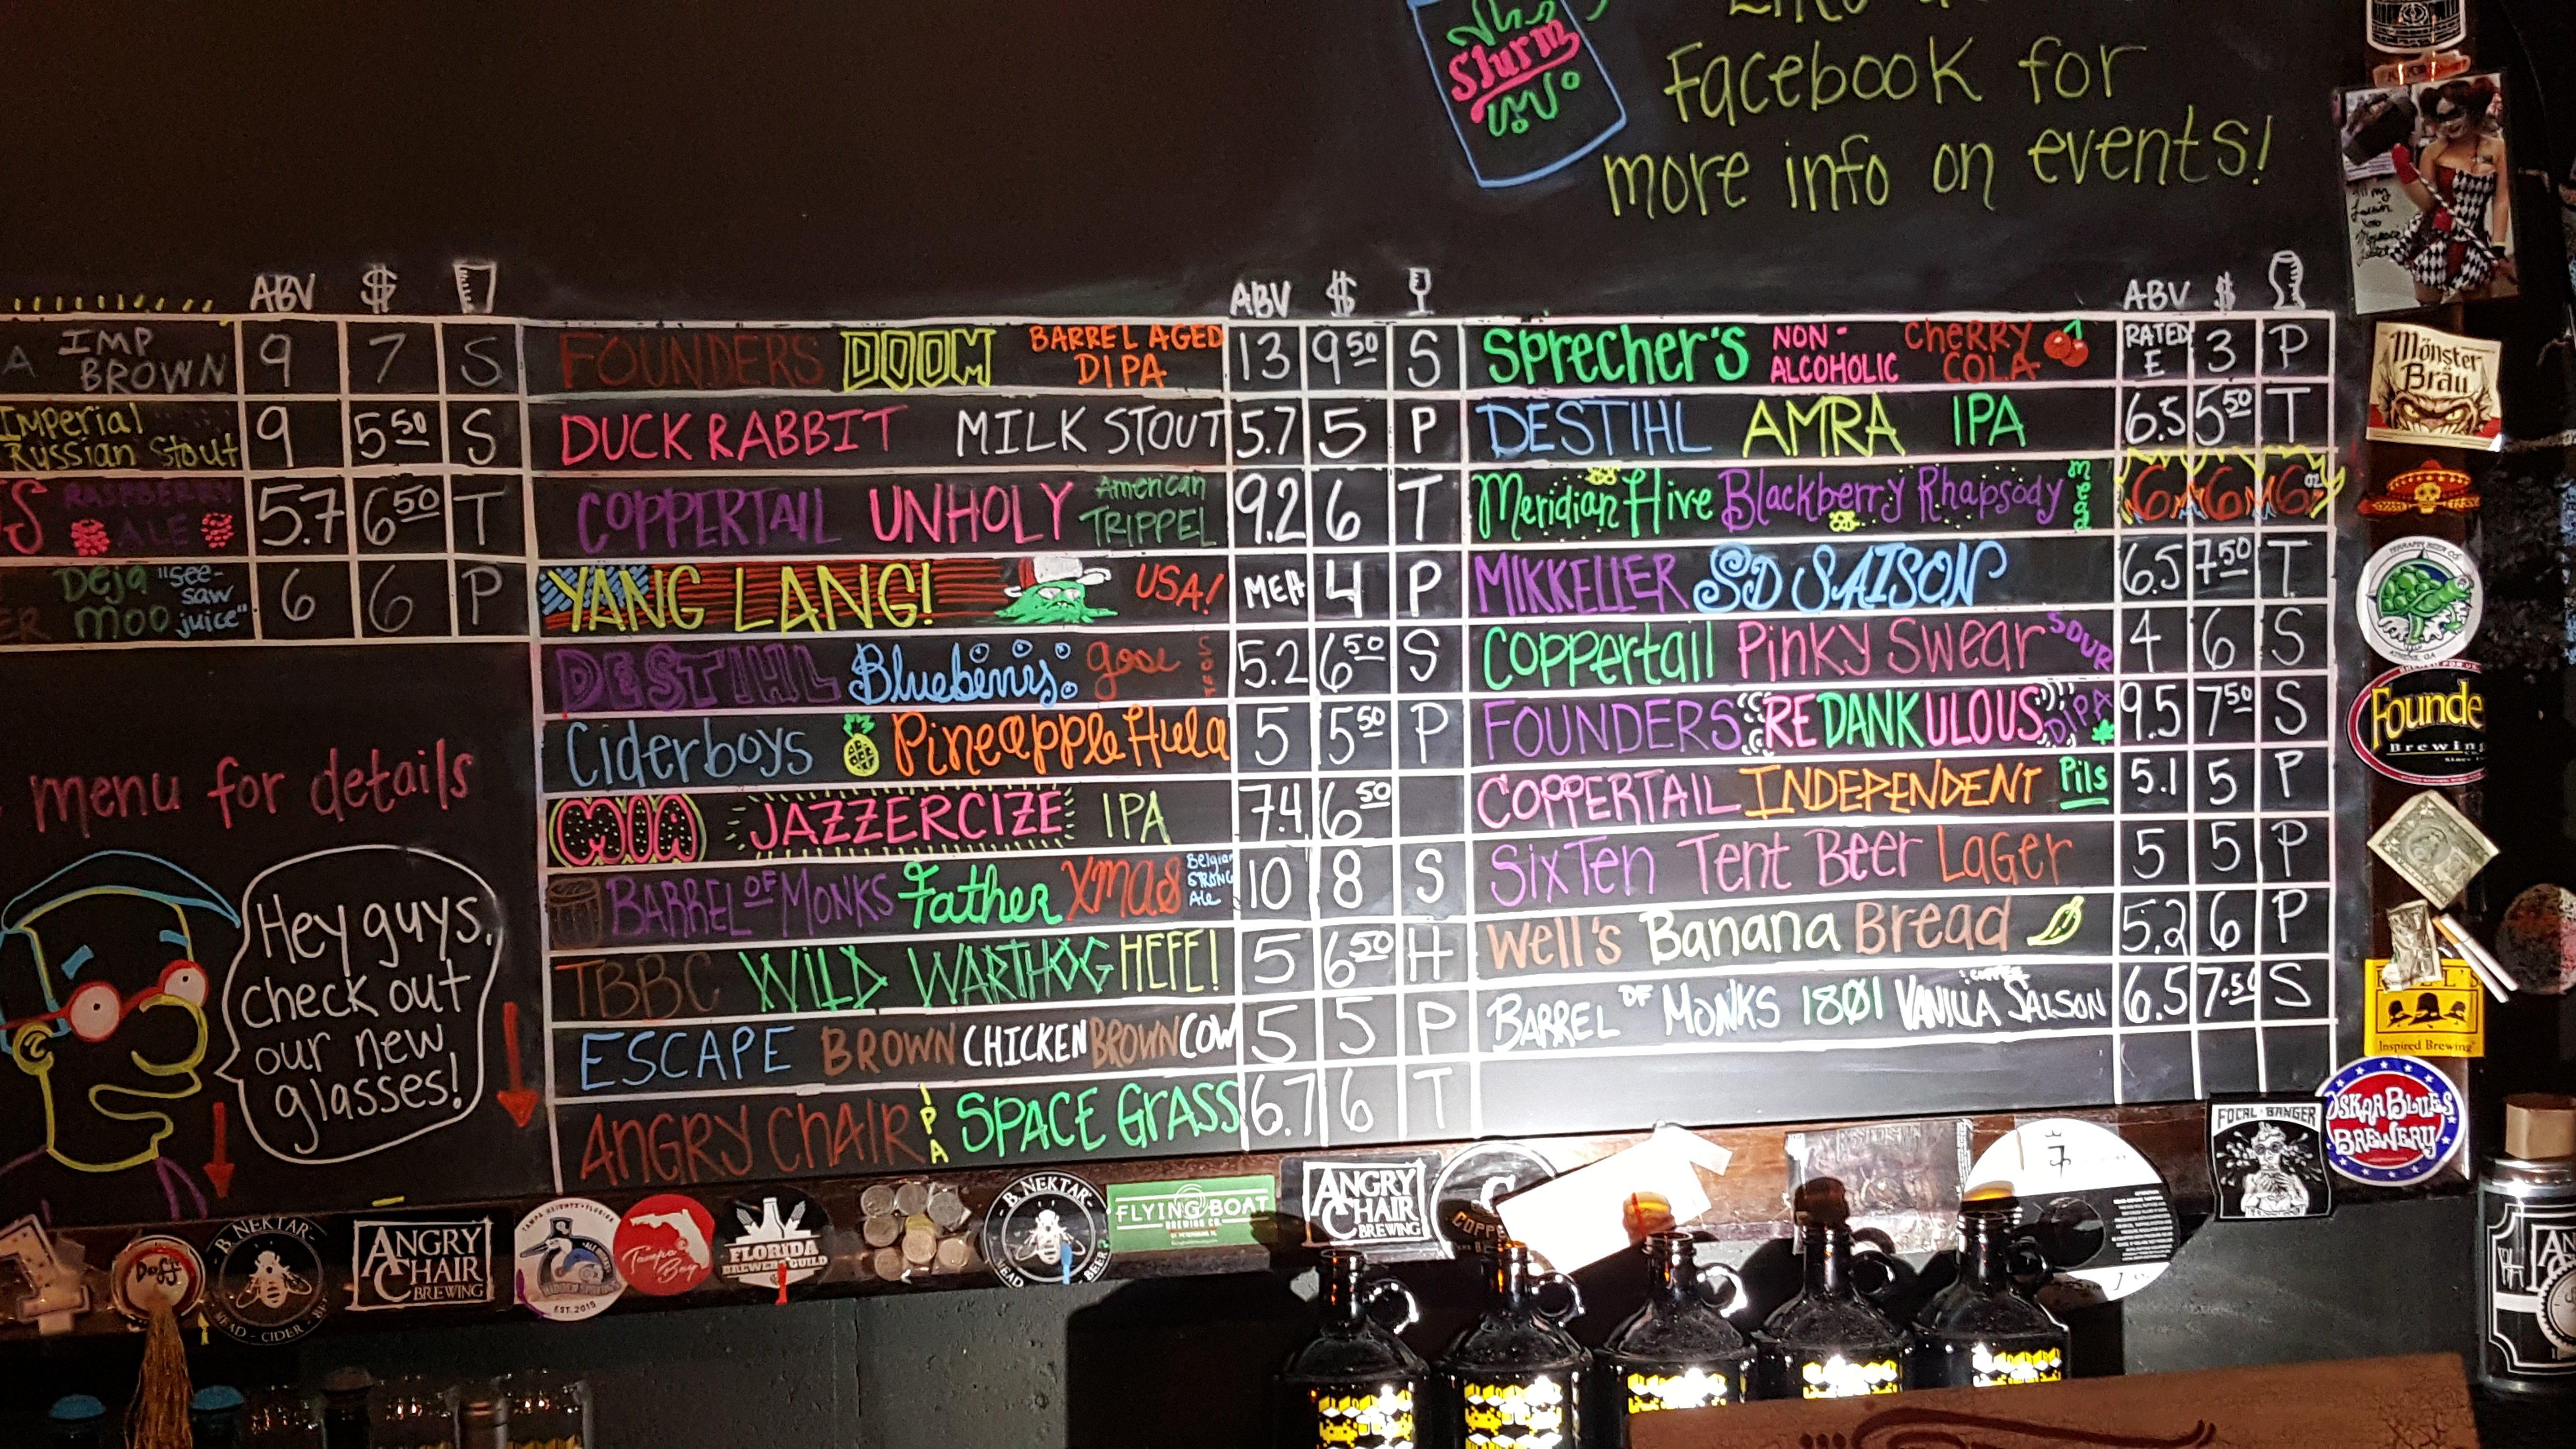 Slurm
Facebook for
more info on events!
ABV $
IMP BROWN 9 7 S
Imperial Russian Stout 9 5.50 S
RASPBERRY ALE 5.7 6.50 T
Deja moo "see-saw juice" 6 6 P
menu for details
Hey guys,
check out
our new
glasses!
ABV $
FOUNDERS DOOM BARREL AGED DIPA 13 9.50 S
DUCK RABBIT MILK STOUT 5.7 5 P
COPPERTAIL UNHOLY American TRIPPEL 9.2 6 T
YANG LANG! USA! MEH 4 P
DESTIHL gose 5.2 6.50 S
Ciderboys Pineapple Hula 5 5.50 P
MIA JAZZERCIZE IPA 7.4 6.50
BARREL OF MONKS Father Xmas Belgian STRONG Ale 10 8 S
TBBC WILD WARTHOG HEFE! 5 6.50 H
ESCAPE BROWN CHICKEN BROWN COW 5 5 P
ANGRY CHAIR IPA SPACE GRASS 6.7 6 T
ABV $
Sprecher's NON-ALCOHOLIC CHERRY COLA RATED E 3 P
DESTIHL AMRA IPA 6.5 5.50 T
Meridian Hive Blackberry Rhapsody 6 6 6oz
MIKKELLER SD SAISON 6.5 7.50 T
Coppertail Pinky Swear SOUR 4 6 S
FOUNDERS REDANKULOUS DIPA 9.5 7.50 S
COPPERTAIL INDEPENDENT Pils 5.1 5 P
SixTen Tent Beer Lager 5 5 P
Well's Banana Bread 5.2 6 P
BARREL OF MONKS 1801 VANILLA COFFEE SAISON 6.5 7.50 S
Mönster
Bräu
Founde
Brewing
Inspired Brewing
OSKAR BLUES
BREWERY
FOCAL BANGER
B. NEKTAR
MEAD - CIDER - BEER
ANGRY
CHAIR
BREWING
EST. 2015
Tampa
Bay
FLORIDA
BREWERS GUILD
B. NEKTAR
FLYING BOAT
BREWING CO.
ANGRY
CHAIR
BREWING